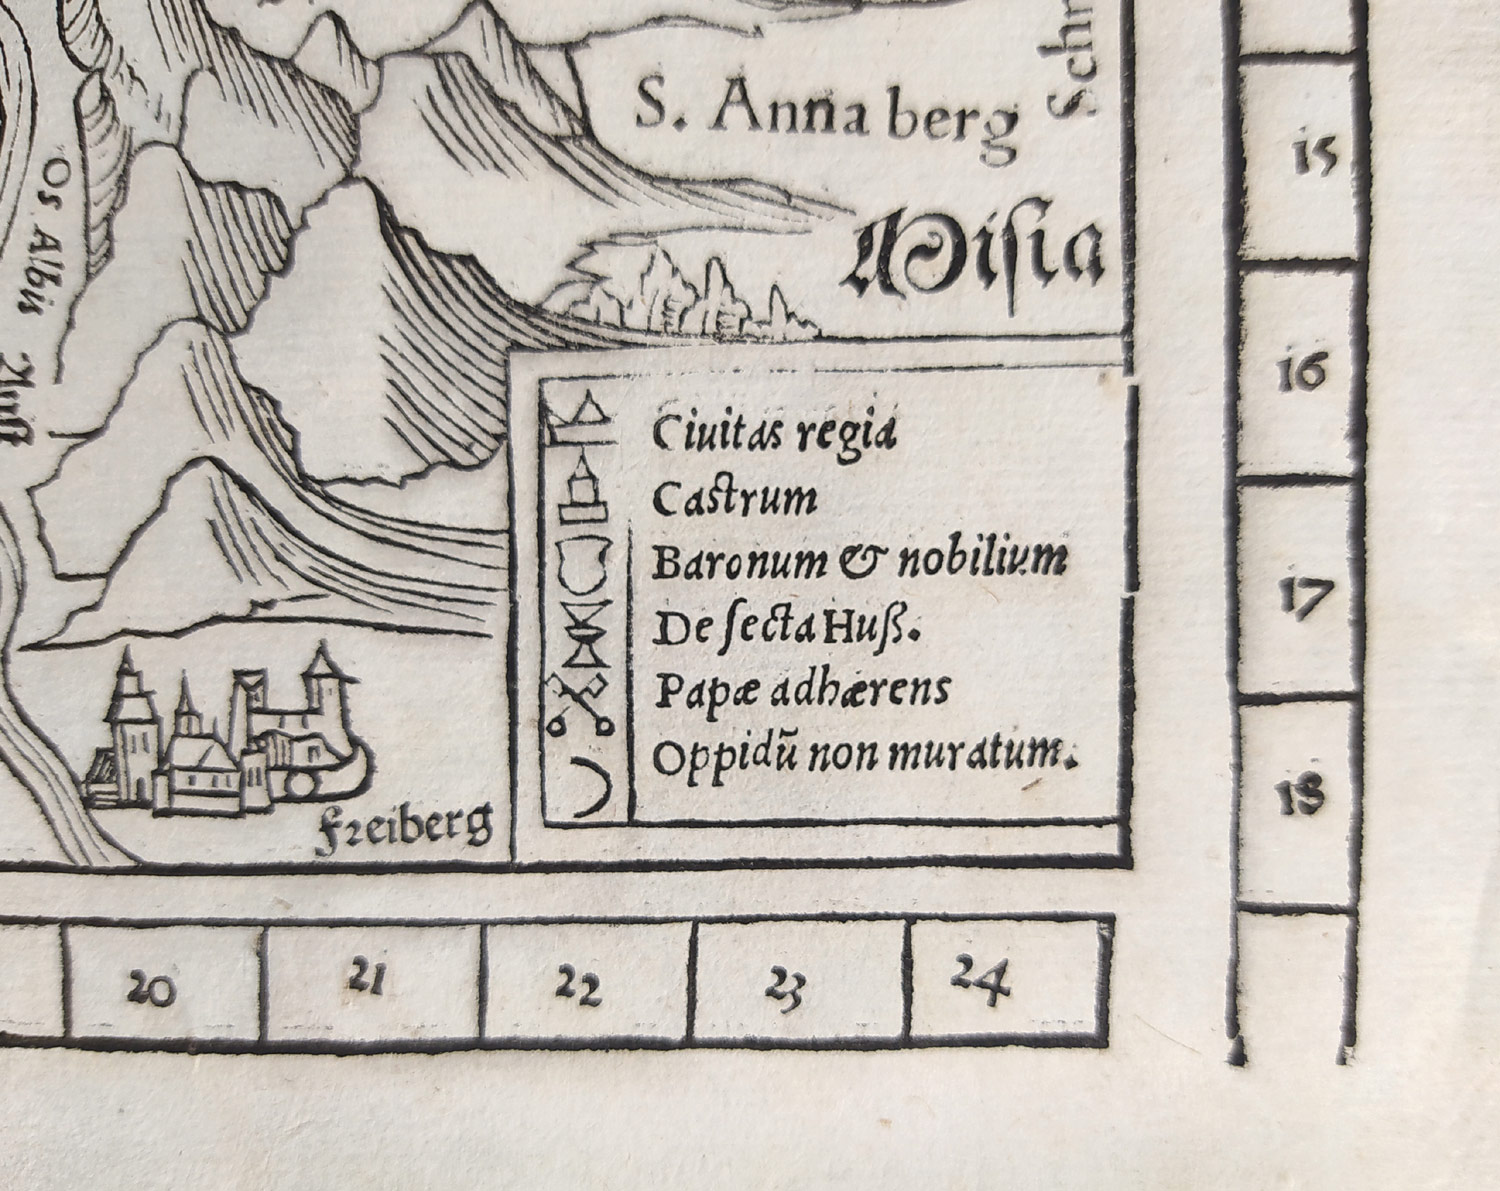 Schn
S. Anna berg
Misia
Os Albis
Ciuitas regia
Castrum
Baronum & nobilium
De ſecta Huß.
Papæ adhærens
Oppidū non muratum.
Freiberg
15
16
17
18
20
21
22
23
24